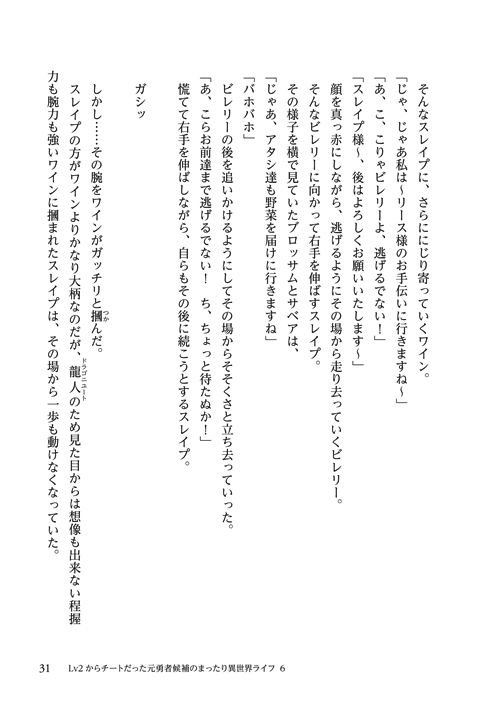 そんなスレイプに、さらににじり寄っていくワイン。
「じゃ、じゃあ私は～リース様のお手伝いに行きますね～」
「あ、こ、こりゃビレリーよ、逃げるでない！」
「スレイプ様～、後はよろしくお願いいたします～」
顔を真っ赤にしながら、逃げるようにその場から走り去っていくビレリー。
そんなビレリーに向かって右手を伸ばすスレイプ。
その様子を横で見ていたブロッサムとサベアは、
「じゃあ、アタシ達も野菜を届けに行きますね」
「バホバホ」
ビレリーの後を追いかけるようにしてその場からそそくさと立ち去っていった。
「あ、こらお前達まで逃げるでない！　ち、ちょっと待たぬか！」
慌てて右手を伸ばしながら、自らもその後に続こうとするスレイプ。
ガシッ
しかし……その腕をワインがガッチリと摑んだ。
つか
スレイプの方がワインよりかなり大柄なのだが、龍人のため見た目からは想像も出来ない程握
ドラゴニュート
力も腕力も強いワインに摑まれたスレイプは、その場から一歩も動けなくなっていた。
31 Lv2からチートだった元勇者候補のまったり異世界ライフ 6